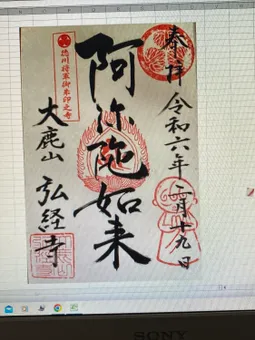 奉拝 令和六年二月十九日
阿弥陀如来
徳川将軍御朱印之寺
大鹿山 弘経寺
SONY